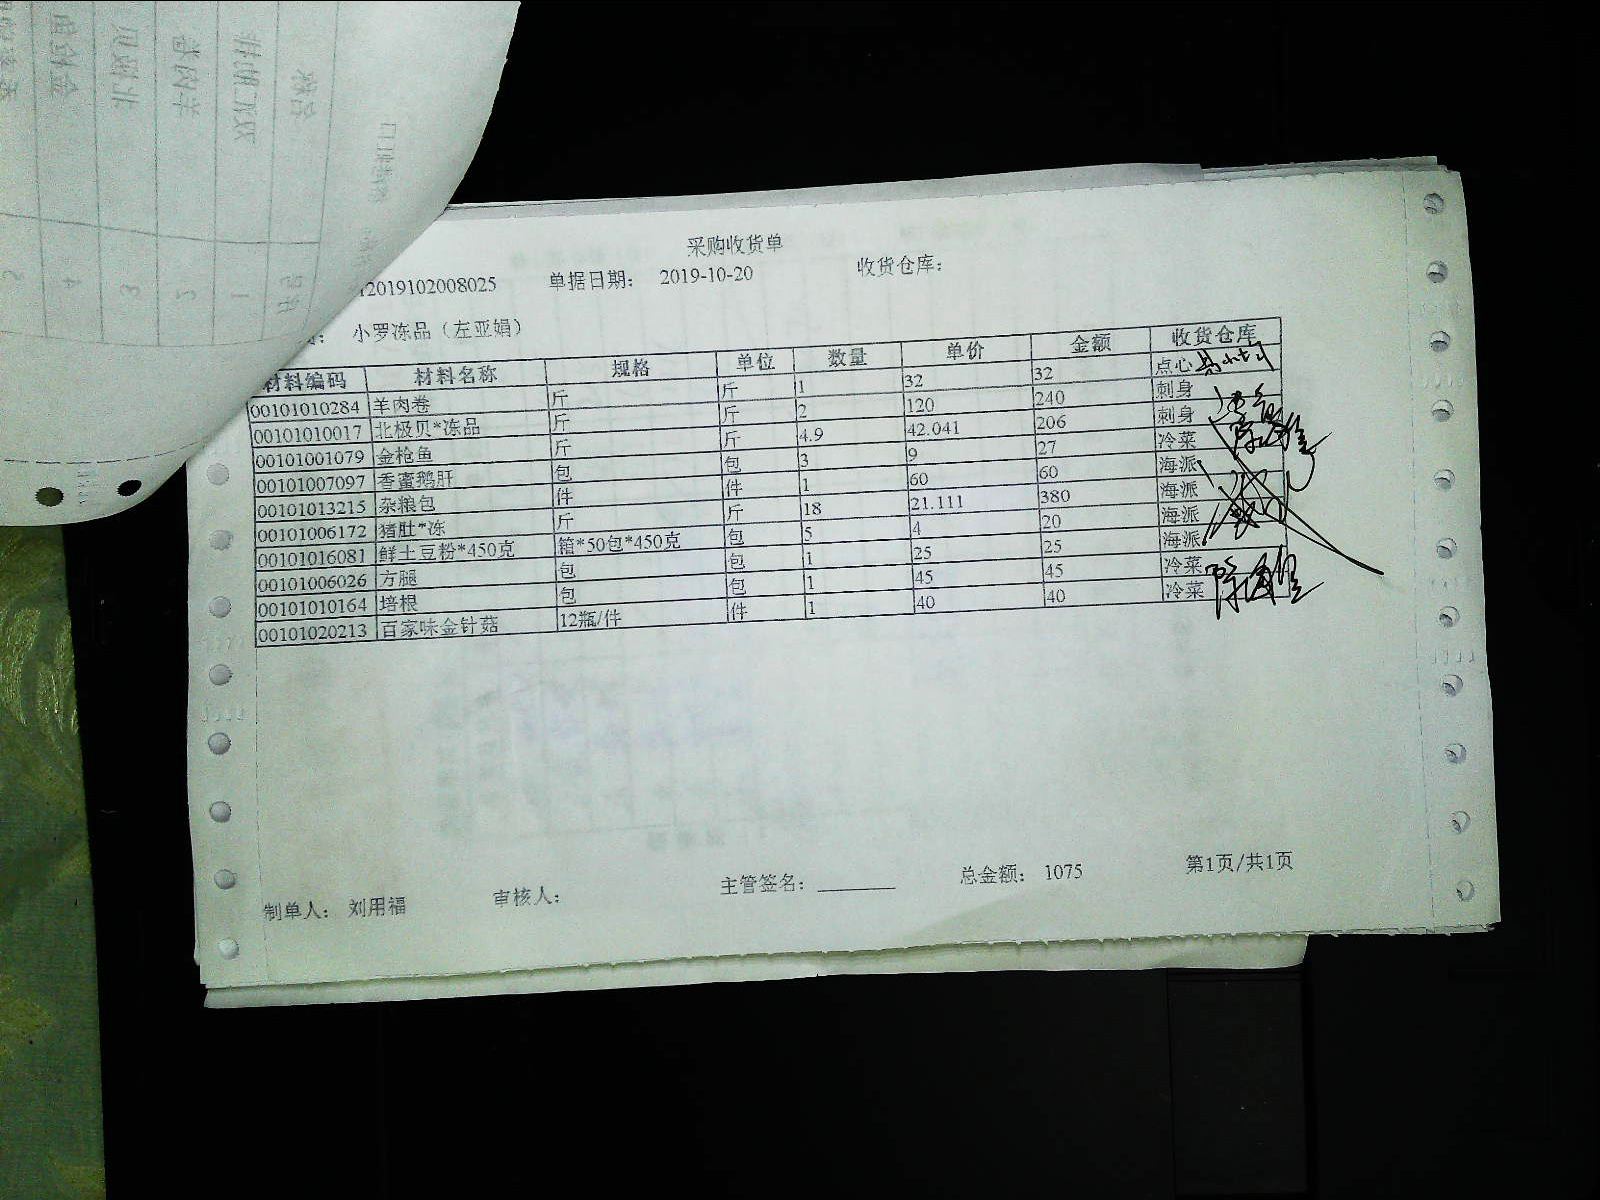 采购收货单
12019102008025 单据日期： 2019-10-20 收货仓库：
： 小罗冻品（左亚娟）
材料编码 材料名称 规格 单位 数量 单价 金额 收货仓库
00101010284 羊肉卷 斤 斤 1 32 32 点心
00101010017 北极贝*冻品 斤 斤 2 120 240 刺身
00101001079 金枪鱼 斤 斤 4.9 42.041 206 刺身
00101007097 香蜜鹅肝 包 包 3 9 27 冷菜
00101013215 杂粮包 件 件 1 60 60 海派
00101006172 猪肚*冻 斤 斤 18 21.111 380 海派
00101016081 鲜土豆粉*450克 箱*50包*450克 包 5 4 20 海派
00101006026 方腿 包 包 1 25 25 海派
00101010164 培根 包 包 1 45 45 冷菜
00101020213 百家味金针菇 12瓶/件 件 1 40 40 冷菜
制单人： 刘用福 审核人： 主管签名：________ 总金额： 1075 第1页/共1页